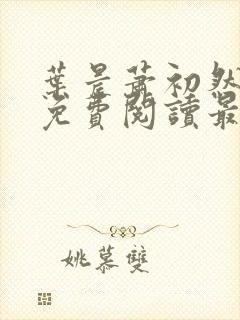 葉景蕭初然
免費閱讀最
姚慕雙